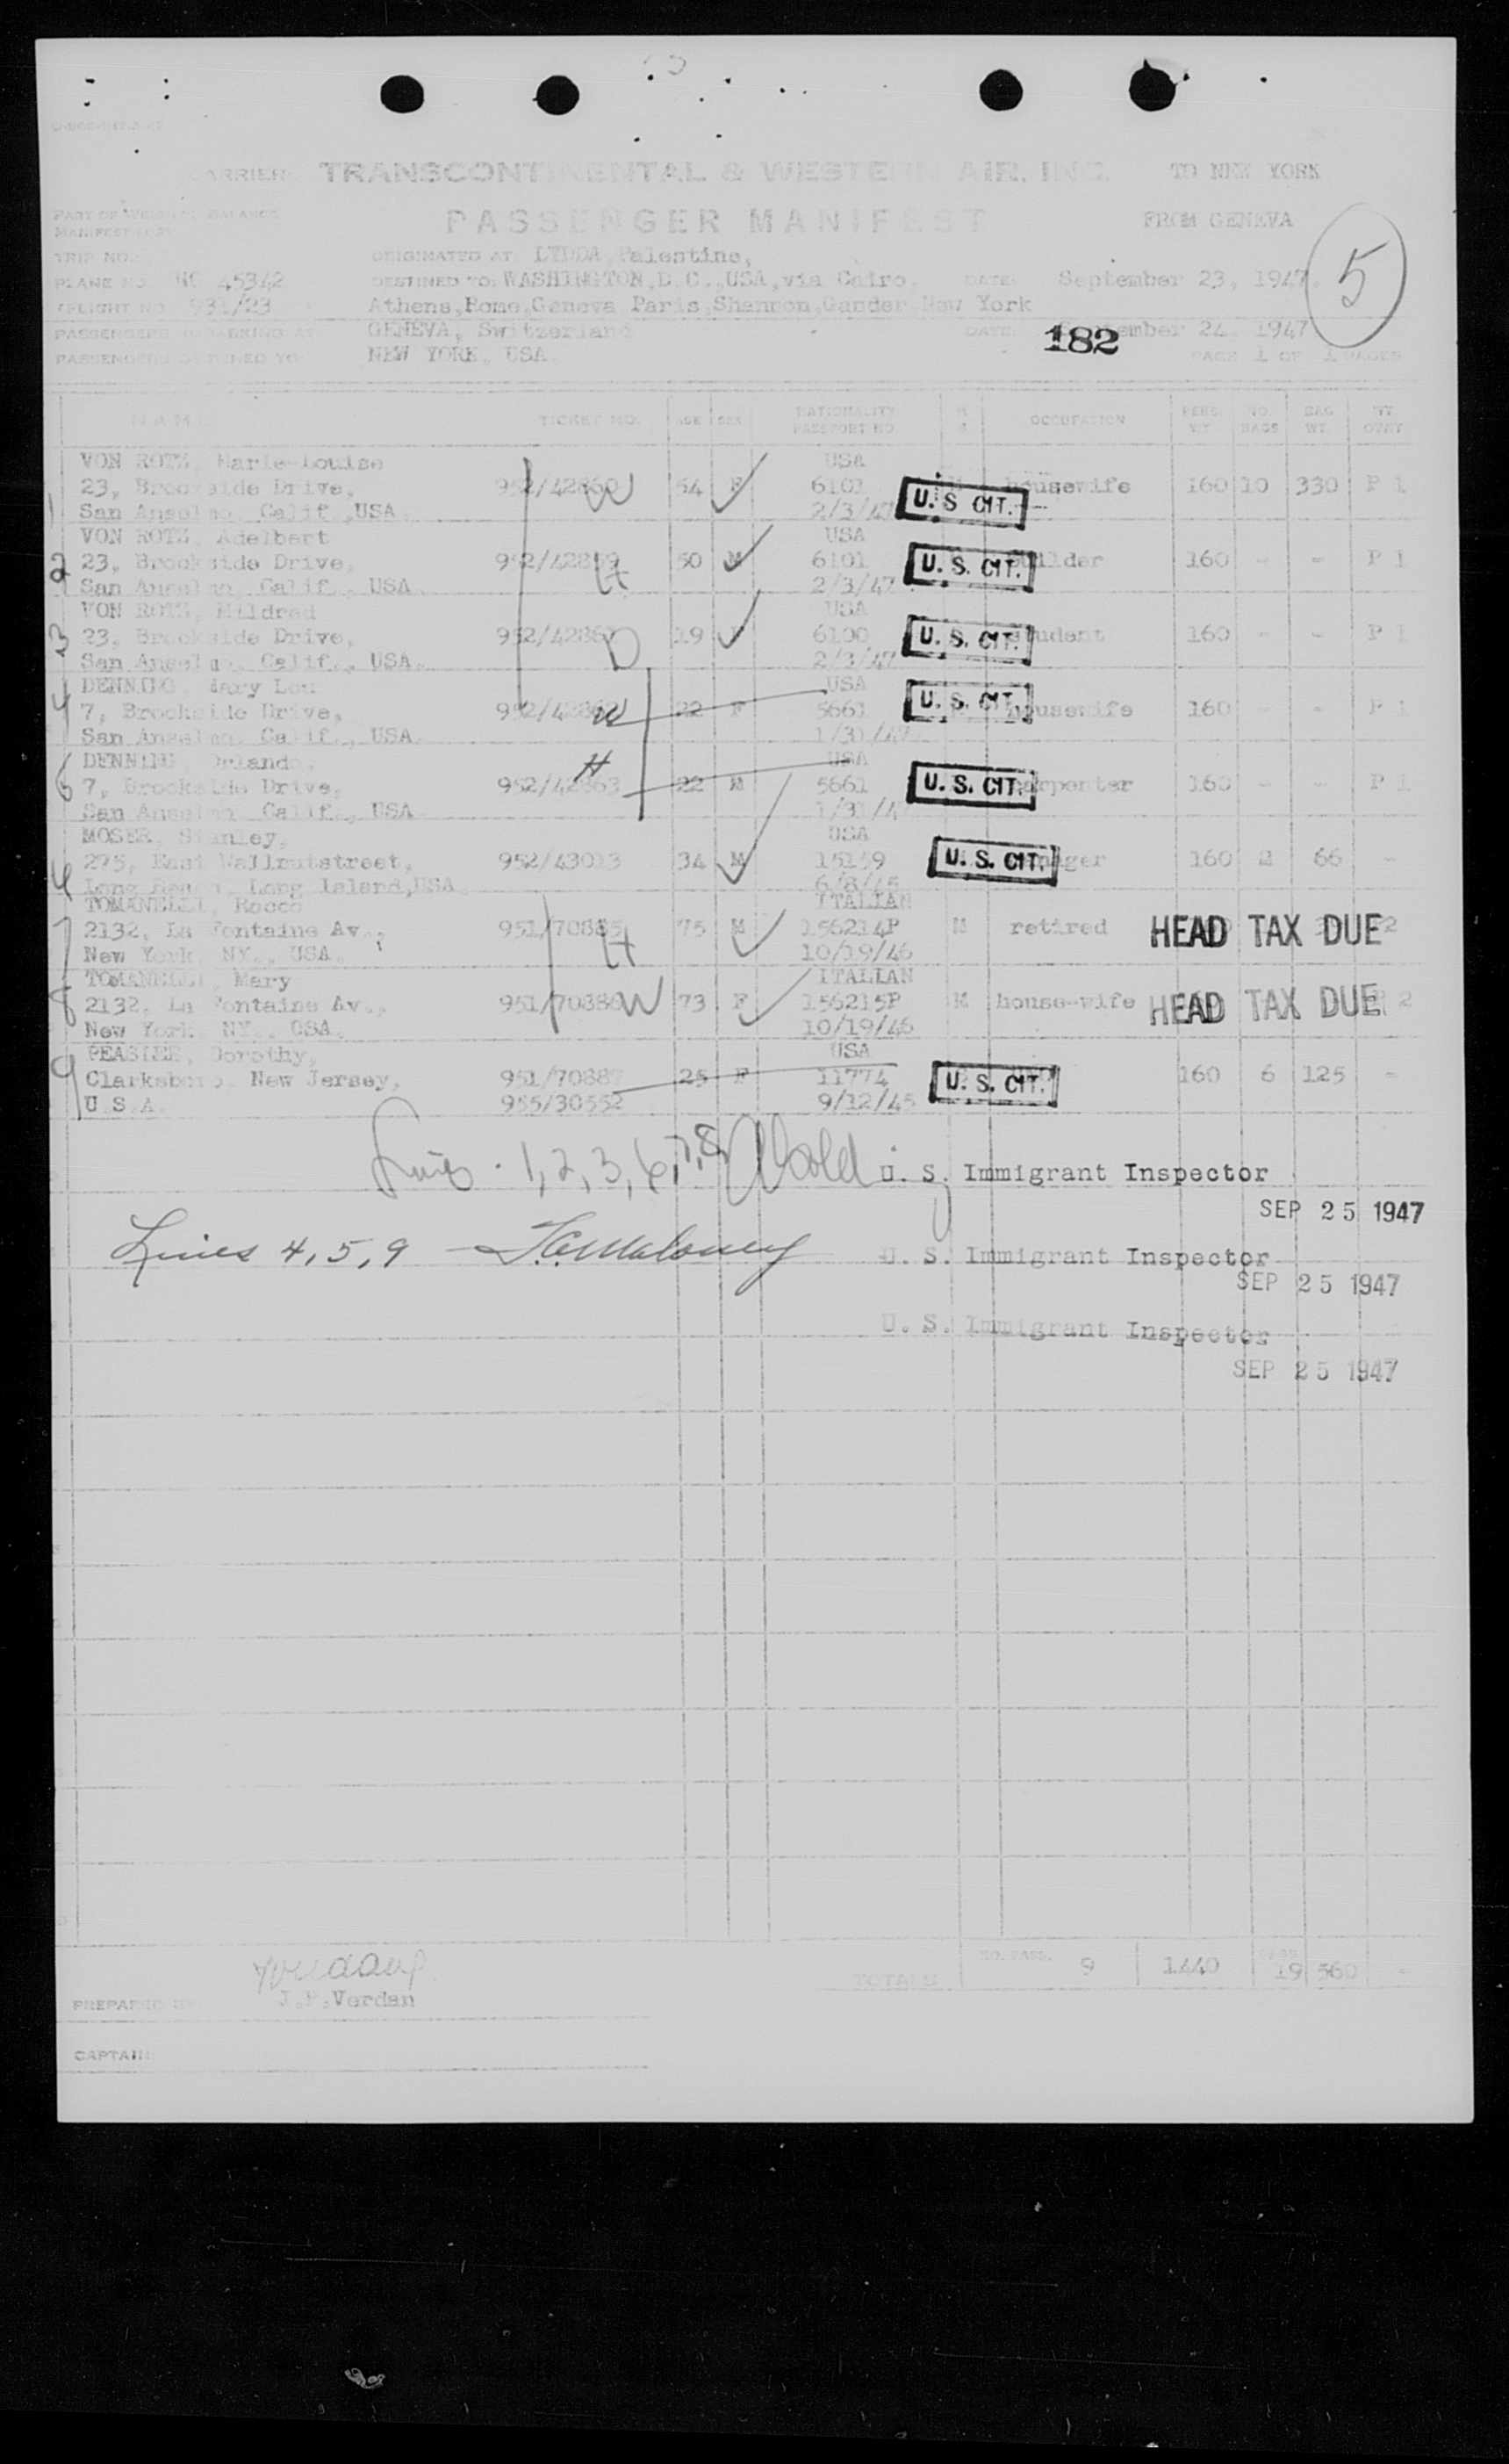 CARRIER TRANSCONTINENTAL & WESTERN AIR, INC. TO NEW YORK
PASSENGER MANIFEST FROM GENEVA
5
TRIP NO. ORIGINATED AT LYDDA Palestine,
PLANE NO. NC 45342 DESTINED TO: WASHINGTON, D.C., USA, via Cairo, DATE: September 23, 1947.
FLIGHT NO. 931/23 Athens, Rome, Geneva Paris, Shannon, Gander New York
PASSENGERS EMBARKING AT GENEVA, Switzerland DATE: September 24, 1947
182
PASSENGERS DESTINED TO NEW YORK, USA. PAGE 1 OF 1 PAGES
NAME TICKET NO. AGE SEX NATIONALITY PASSPORT NO. OCCUPATION PERS. WT. NO. BAGS BAG WT. WT. OVRT
VON ROTZ, Marie-Louise USA
1 23, Brookside Drive, 952/42860 W 54 F 6101 U.S CIT. housewife 160 10 330 P 1
San Anselmo, Calif., USA. 2/3/47
VON ROTZ, Adelbert USA
2 23, Brookside Drive, 952/42859 H 50 M 6101 U.S. CIT. builder 160 - - P 1
San Anselmo, Calif., USA. 2/3/47
VON ROTZ, Mildred USA
3 23, Brookside Drive, D 19 F 6100 U.S. CIT. student 160 - - P 1
San Anselmo, Calif., USA. 2/3/47
DENNING, Mary Lou USA
4 7, Brookside Drive, W 22 F 5661 U.S. CIT. housewife 160 - - P 1
San Anselmo, Calif., USA. 1/31/47
DENNING, Orlando, USA
7, Brookside Drive, 952/42863 H 22 M 5661 U.S. CIT. carpenter 160 - - P 1
San Anselmo, Calif., USA. 1/31/47
MOSER, Stanley, USA
275, East Wallnutstreet, 952/43013 34 M 15159 U.S. CIT. manager 160 66 -
Long Beach, Long Island, USA. 6/8/45
TOMANELLI, Rocco ITALIAN
7 2132, La Fontaine Av., 951/70885 H 75 M 156214P M retired HEAD TAX DUE 2
New York, NY., USA. 10/19/46
TOMANELLI, Mary ITALIAN
8 2132, La Fontaine Av., 951/70886 W 73 F 156215P M house-wife HEAD TAX DUE 2
New York, NY., USA. 10/19/46
PEASLEE, Dorothy, USA
9 Clarksboro, New Jersey, 951/70887 25 F 11774 U.S. CIT. 160 6 125 -
U.S.A. 955/30552 9/12/45
Lines 1,2,3,6,7,8 U. S. Immigrant Inspector
SEP 25 1947
Lines 4, 5, 9 U. S. Immigrant Inspector
SEP 25 1947
U. S. Immigrant Inspector
SEP 25 1947
TOTALS NO. PASS. 9 1440 19 560 -
PREPARED BY J.P. Verdan
CAPTAIN